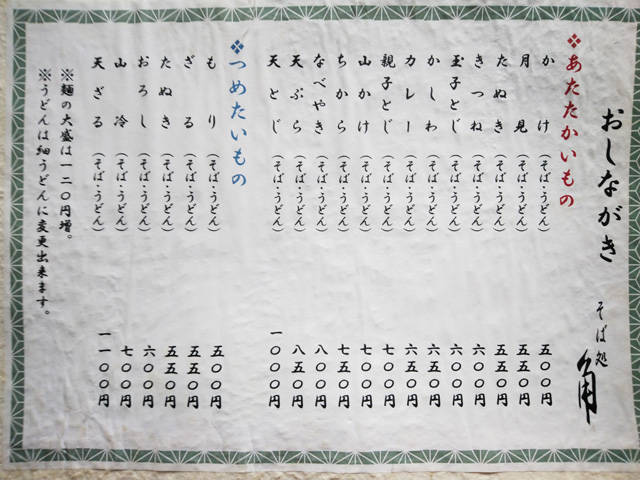 おしながき
そば処
❖あたたかいもの
かけ（そば・うどん） 五〇〇円
月見（そば・うどん） 五五〇円
たぬき（そば・うどん） 五五〇円
きつね（そば・うどん） 六〇〇円
玉子とじ（そば・うどん） 六〇〇円
かしわ（そば・うどん） 六五〇円
カレー（そば・うどん） 六五〇円
親子とじ（そば・うどん） 七〇〇円
山かけ（そば・うどん） 七〇〇円
ちから（そば・うどん） 七五〇円
なべやき（そば・うどん） 八〇〇円
天ぷら（そば・うどん） 八五〇円
天とじ（そば・うどん） 一〇〇〇円
❖つめたいもの
もり（そば・うどん） 五〇〇円
ざる（そば・うどん） 五五〇円
たぬき（そば・うどん） 五五〇円
おろし（そば・うどん） 六〇〇円
山冷（そば・うどん） 七〇〇円
天ざる（そば・うどん） 一一〇〇円
※麺の大盛は一二〇円増。
※うどんは細うどんに変更出来ます。